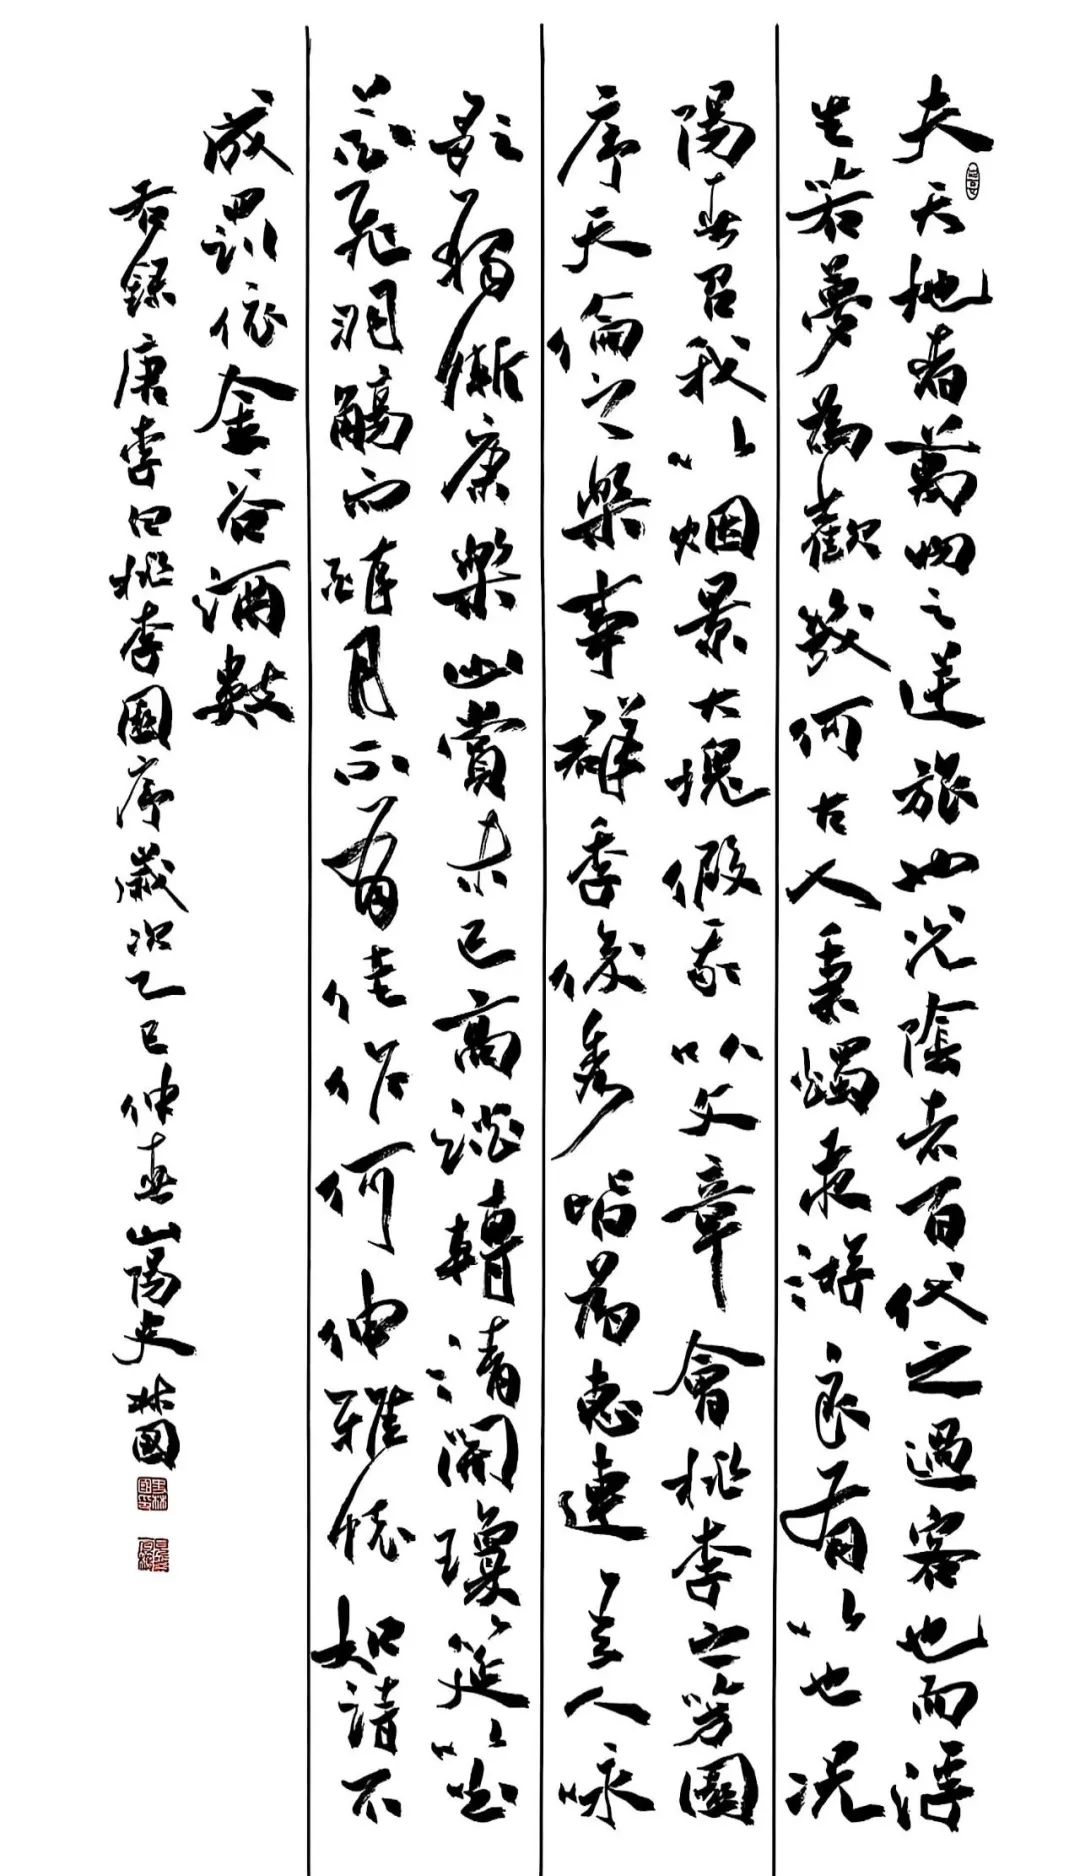 夫天地者萬物之逆旅也光陰者百代之過客也而浮
生若夢為歡幾何古人秉燭夜游良有以也况
陽春召我以烟景大塊假我以文章會桃李之芳園
序天倫之樂事群季俊秀皆為惠連吾人詠
歌獨慚康樂幽賞未已高談轉清開瓊筵以坐
花飛羽觴而醉月不有佳作何伸雅懷如詩不
成罰依金谷酒數
右錄唐李白桃李園序歲次乙巳仲春山陽史林國